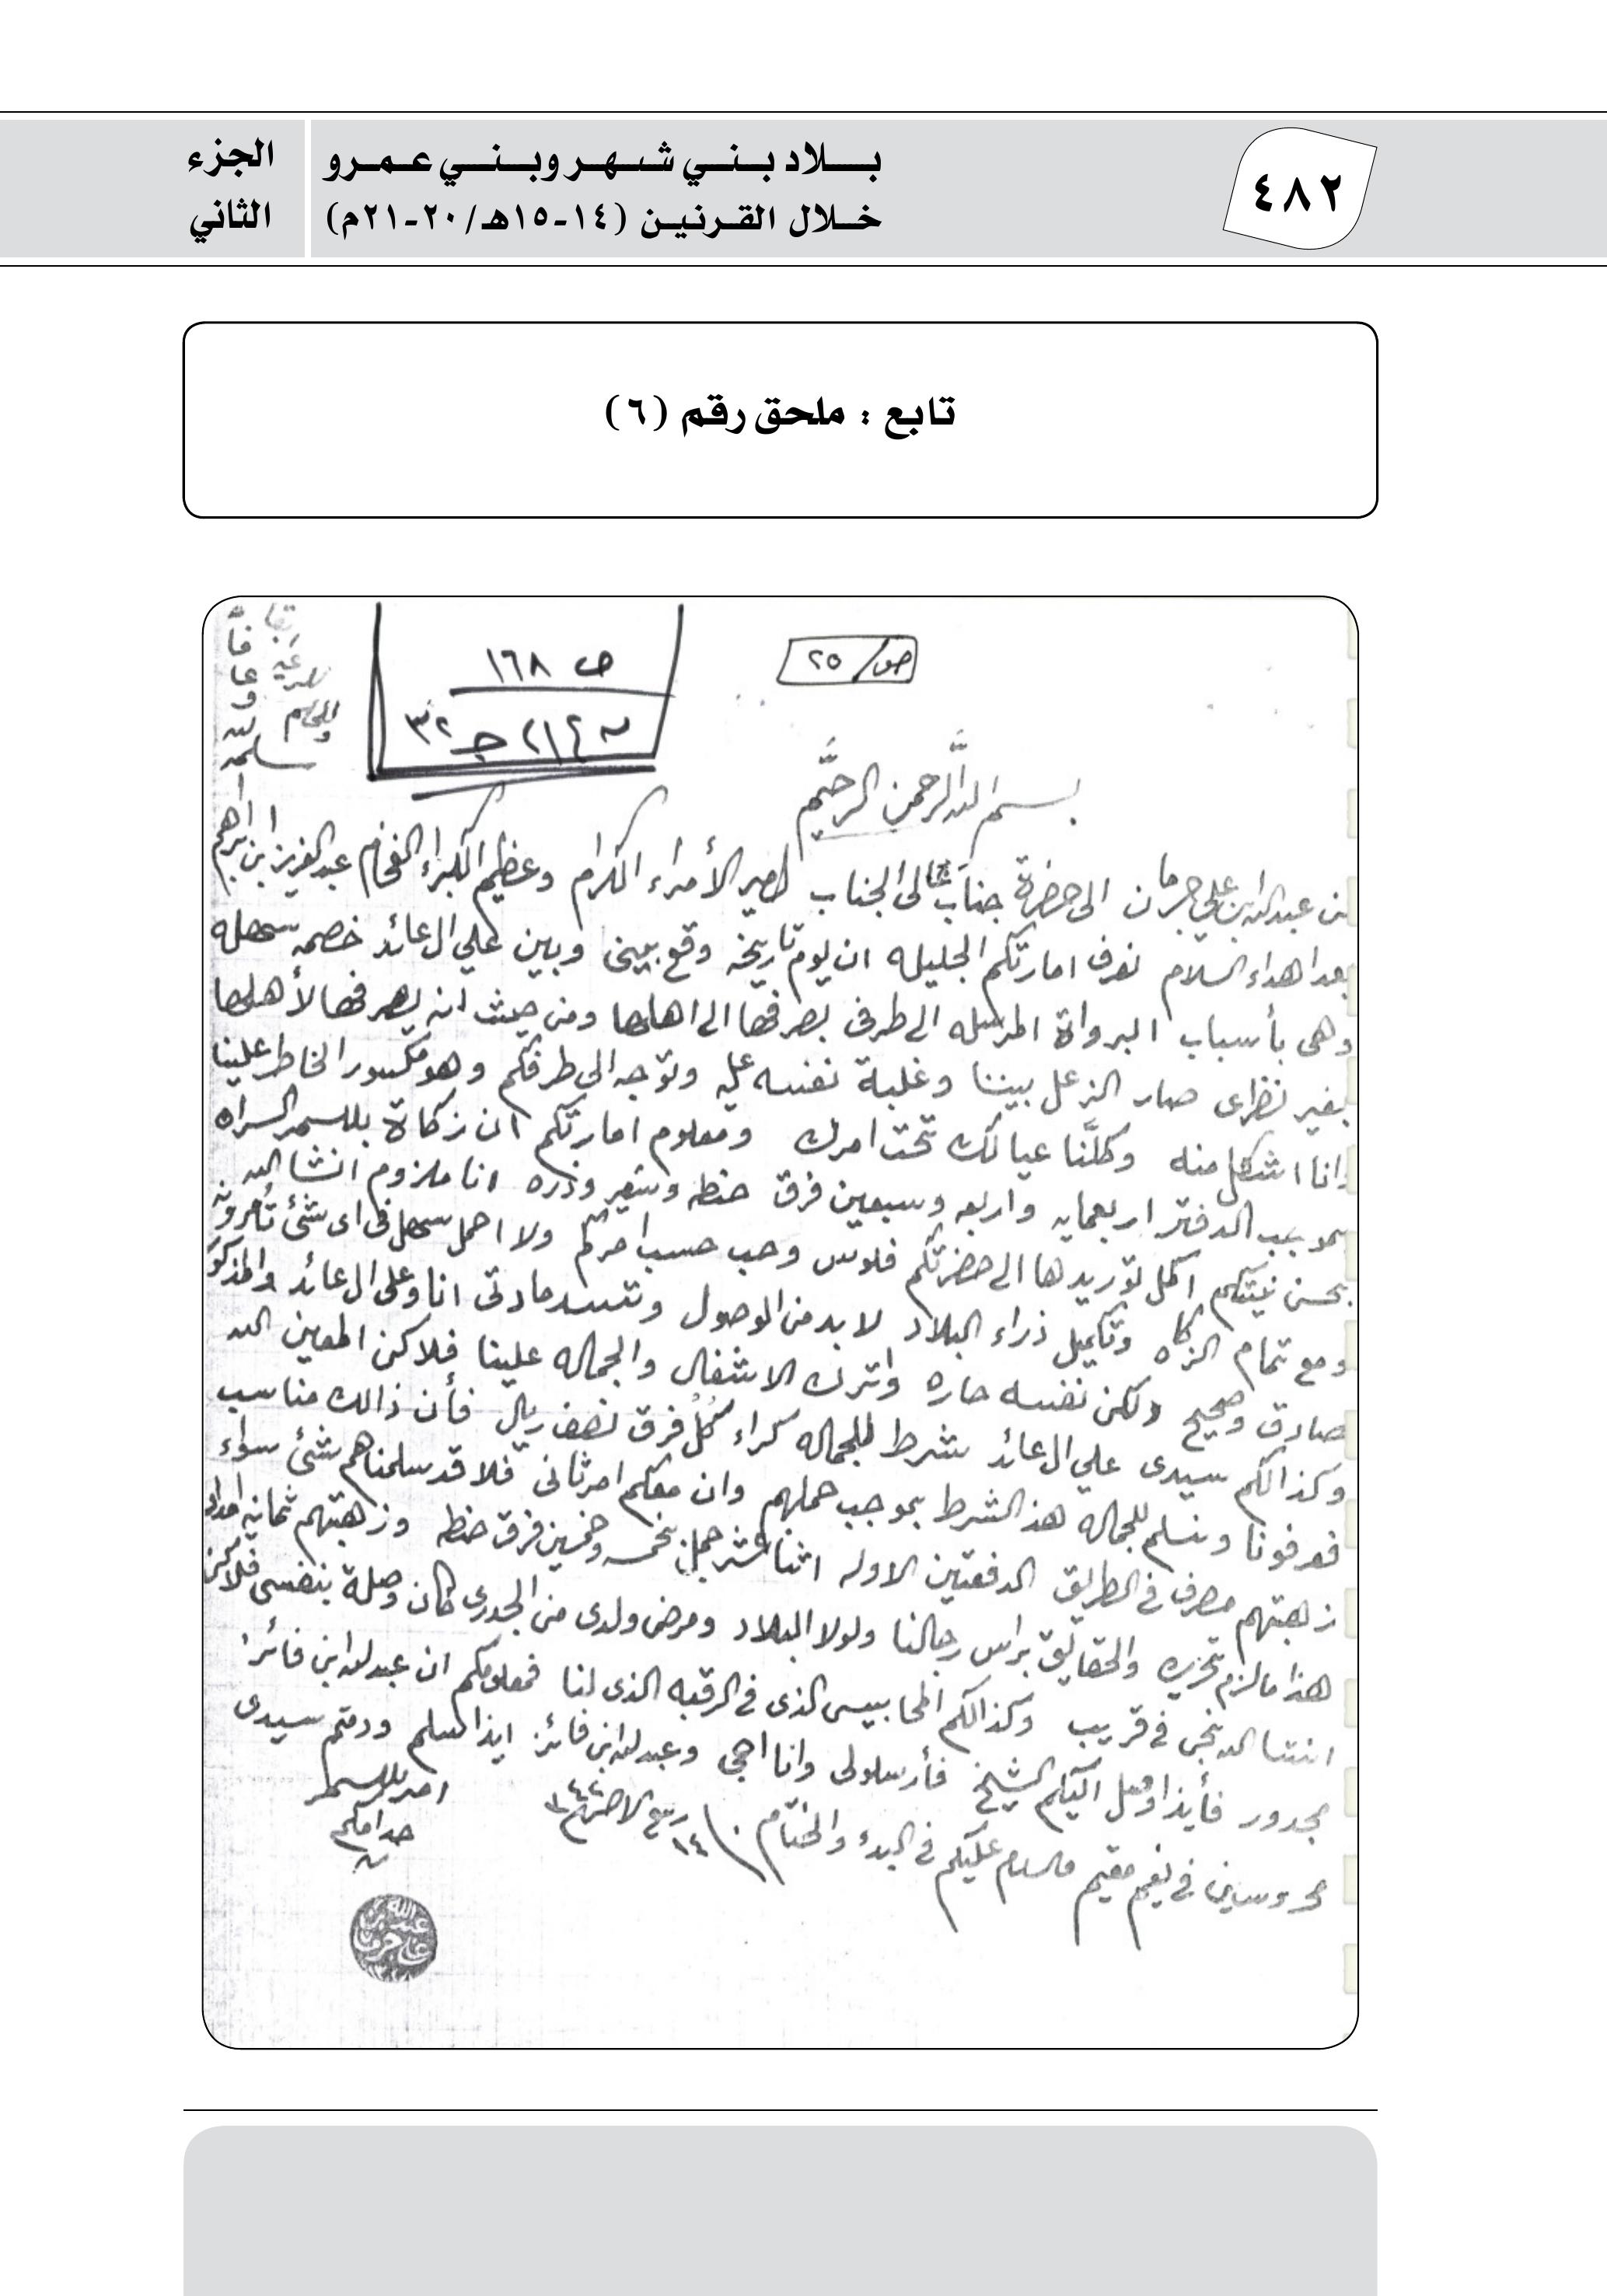 ٤٨٢
بلاد بني شهر وبني عمرو
خلال القرنين (١٤-١٥هـ/٢٠-٢١م)
الجزء
الثاني
تابع : ملحق رقم (٦)
ص/ ٢٥
ص ١٦٨
بسم الله الرحمن الرحيم
من عبدالله بن علي جرمان الى حضرة جناب عالى الجناب امير الأمراء الكرام وعظيم الكبراء الفخام عبدالعزيز ابن ابراهيم
سلمه الله
بعد اهداء السلام نعرف امارتكم الجليله ان يوم تاريخه وقع بينى وبين علي ال عائد خصمه سهله
وهى بأسباب البرواة المرسله الى طرفى بصرفها الى اهلها ومن حيث انه يصرفها لأهلها
بغير نظراى صار الزعل بيننا وغلبة نفسه عليه وتوجه الى طرفكم وهو مكسور الخاطر علينا
وانا اشكل منه وكلنا عيالك تحت امرك ومعلوم امارتكم ان زكاة بللسمر السراه
بموجب الدفتر اربعمايه واربعه وسبعين فرق حنطه وشعير وذره انا ملزوم انشا الله
بحسن نيتكم اكمل توريدها الى حضرتكم فلوس وحب حسب امركم ولا احمل سهل فى اى شئ تأمرونه
ومع تمام الزكاه وتكميل ذراء البلاد لابد من الوصول وتسد مادتى انا وعلى ال عائد والمذكور
صادق وصحيح ولكن نفسه حاره واترك الاشغال والجماله علينا فلاكن المعين الله
وكذالكم سيدى علي ال عائد شرط للجماله كراء كل فرق نصف ريال فأن ذالك مناسب
فعرفونا ونسلم للجماله هذ الشرط بموجب حملهم وان معكم امر ثانى فلا قد سلمناهم شئ سواء
زهبتهم مصرف فى الطريق الدفعتين الاوله اثنا عشر جمل بخمسه وخمسين فرق حنطه وزهبتهم ثمانيه امداد
هذا مالزم تحريره والحقايق براس رجالنا ولولا البلاد ومرض ولدى من الجدرى كان وصلة بنفسى فلاكن
انشا الله نجى فى قريب وكذالكم المحابيس الذى فى الرقبه الذى لنا فمعلومكم ان عبدلله ابن فائز
مجدور فأيذا وصل اليكم الشيخ فأرسلولى وانا اجى وعبدلله ابن فائز ايذا سلم ودمتم سيدى
محروسين فى نعيم مقيم والسلام عليكم فى البدء والختام
١٤ ربيع الاخر ١٣٤٢
امير بللسمر
خدامكم
عبدالله بن
علي جرمان